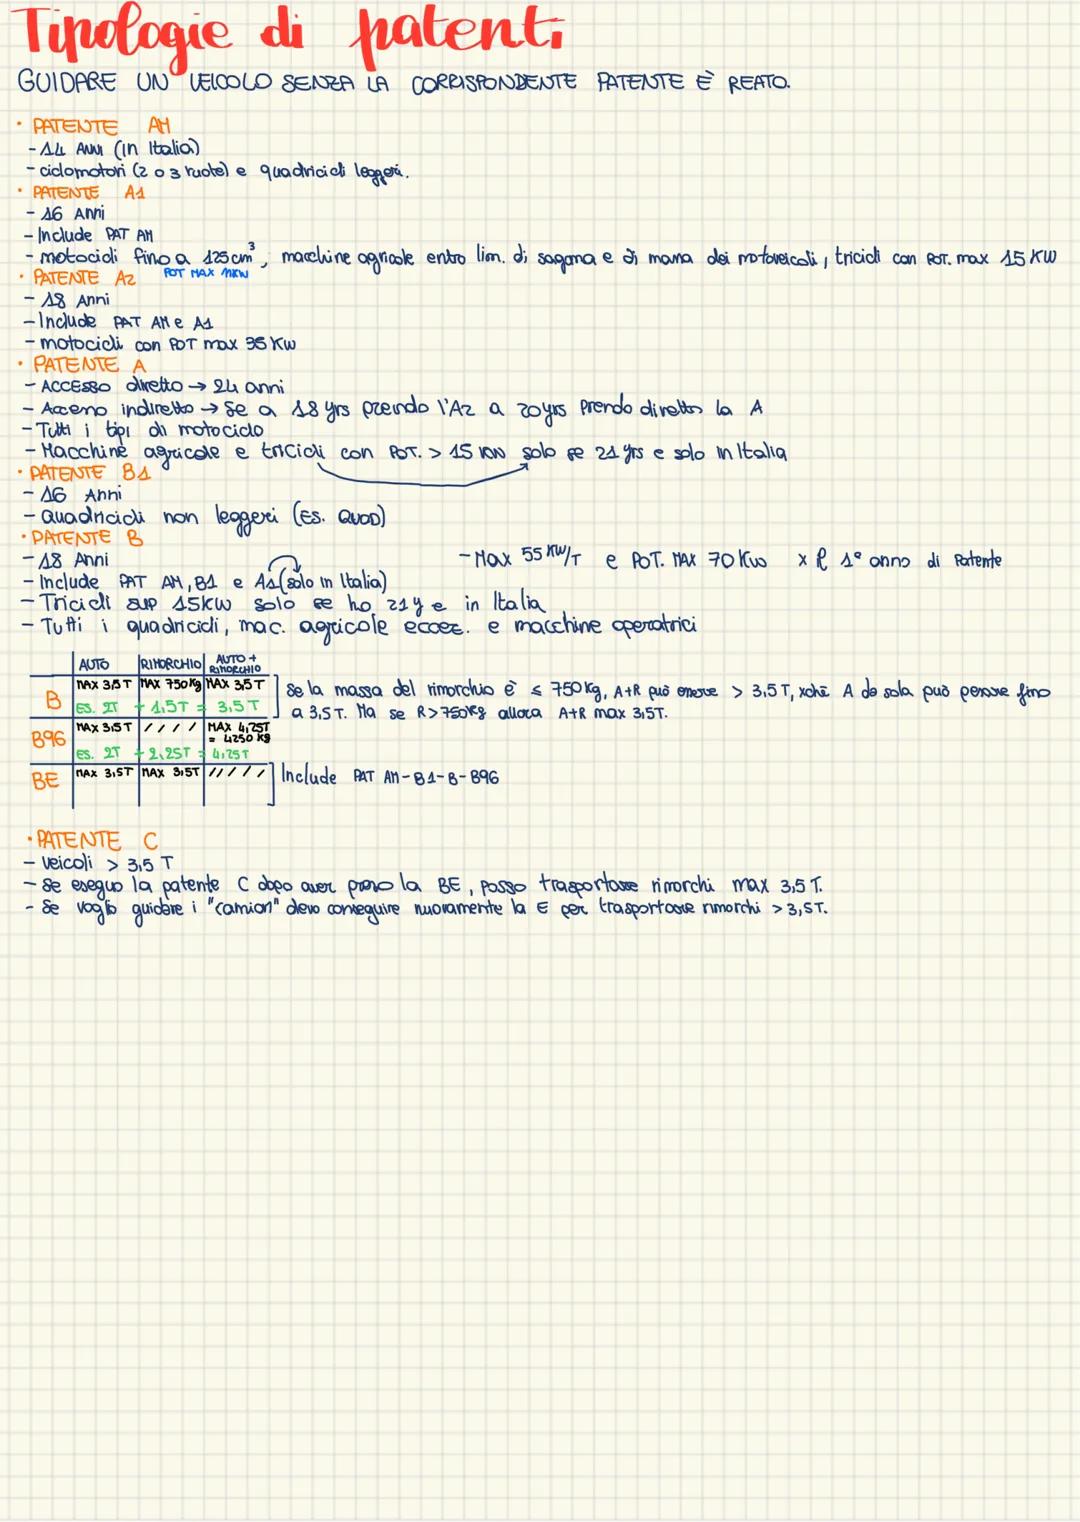 Tipologie di patenti
GUIDARE UN VEICOLO SENZA LA CORRISPONDENTE PATENTE È REATO.
• PATENTE AM
- 14 ANNI (in Italia)
- ciclomotori (2 o 3 ruote) e quadricicli leggeri.
• PATENTE A1
- 16 Anni
- Include PAT AM
- motocicli fino a 125 cm³, macchine agricole entro lim. di sagoma e di massa dei motoveicoli, tricicli con POT. max 15 KW
POT MAX 11KW
• PATENTE A2
- 18 Anni
- Include PAT AM e A1
- motocicli con POT max 35 KW
• PATENTE A
- ACCESSO diretto → 24 anni
- Accesso indiretto → Se a 18 yrs prendo l'A2 a 20 yrs prendo diretto la A
- Tutti i tipi di motociclo
- Macchine agricole e tricicli con POT. > 15 KW solo se 21 yrs e solo in Italia
• PATENTE B1
- 16 Anni
- Quadricicli non leggeri (ES. QUAD)
• PATENTE B
- 18 Anni - Max 55 KW/T e POT. MAX 70 KW x il 1° anno di Patente
- Include PAT AM, B1 e A1 (solo in Italia)
- Tricicli sup 15KW solo se ho 21 y e in Italia
- Tutti i quadricicli, mac. agricole eccez. e macchine operatrici
AUTO RIMORCHIO AUTO + RIMORCHIO
B MAX 3,5 T MAX 750 Kg MAX 3,5 T Se la massa del rimorchio è ≤ 750 kg, A+R può essere > 3,5 T, xchè A da sola può pesare fino
ES. 2T + 1,5T = 3,5 T a 3,5 T. Ma se R > 750 Kg allora A+R max 3,5T.
B96 MAX 3,5 T //// MAX 4,25T
= 4250 kg
ES. 2T + 2,25T = 4,25 T
BE MAX 3,5T MAX 3,5T ///// Include PAT AM-B1-B-B96
• PATENTE C
- Veicoli > 3,5 T
- Se eseguo la patente C dopo aver preso la BE, posso trasportare rimorchi max 3,5 T.
- Se voglio guidare i "camion" devo conseguire nuovamente la E per trasportare rimorchi > 3,5T.